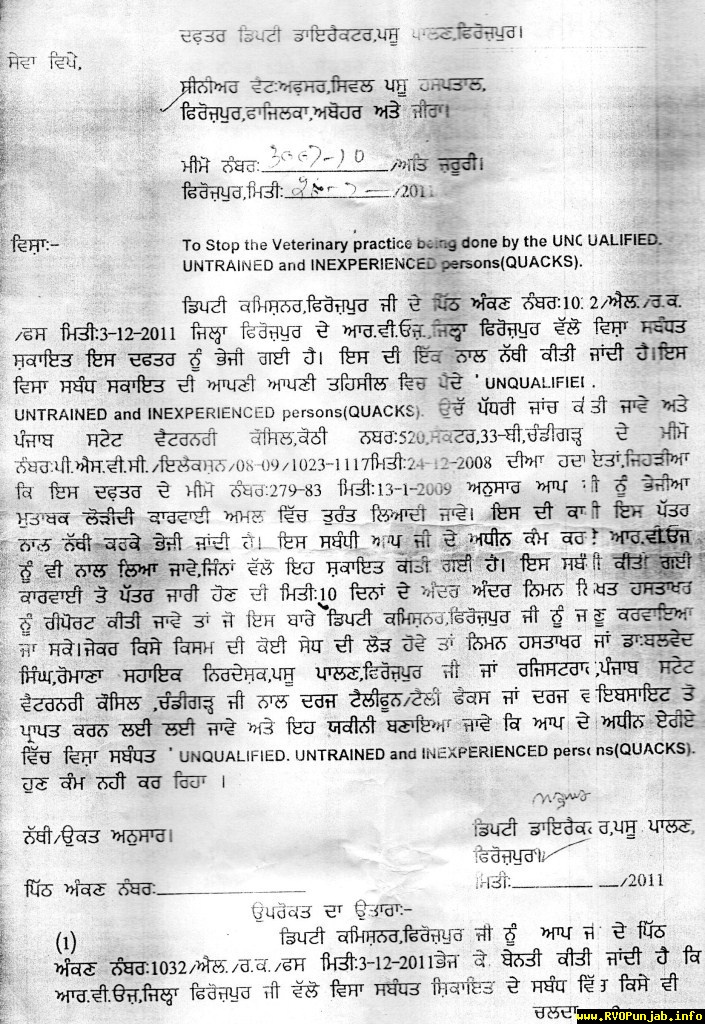 ਦਫ਼ਤਰ ਡਿਪਟੀ ਡਾਇਰੈਕਟਰ,ਪਸੂ ਪਾਲਣ,ਫਿਰੋਜ਼ਪੁਰ।
ਸੇਵਾ ਵਿਖੇ,
ਸੀਨੀਅਰ ਵੈਟ:ਅਫ਼ਸਰ,ਸਿਵਲ ਪਸੂ ਹਸਪਤਾਲ,
ਫਿਰੋਜ਼ਪੁਰ,ਫਾਜਿਲਕਾ,ਅਬੋਹਰ ਅਤੇ ਜੀਰਾ।
ਮੀਮੋ ਨੰਬਰ: /ਅਤਿ ਜ਼ਰੂਰੀ।
ਫਿਰੋਜ਼ਪੁਰ,ਮਿਤੀ: /2011
ਵਿਸ਼ਾ:- To Stop the Veterinary practice being done by the UNQUALIFIED.
UNTRAINED and INEXPERIENCED persons(QUACKS).
ਡਿਪਟੀ ਕਮਿਸ਼ਨਰ,ਫਿਰੋਜ਼ਪੁਰ ਜੀ ਦੇ ਪਿੱਠ ਅੰਕਣ ਨੰਬਰ:10 2/ਐਲ./ਰ.ਕ.
/ਫਸ ਮਿਤੀ:3-12-2011 ਜਿਲ੍ਹਾ ਫਿਰੋਜ਼ਪੁਰ ਦੇ ਆਰ.ਵੀ.ਓਜ਼,ਜਿਲ੍ਹਾ ਫਿਰੋਜ਼ਪੁਰ ਵੱਲੋ ਵਿਸ਼ਾ ਸਬੰਧਤ
ਸ਼ਕਾਇਤ ਇਸ ਦਫਤਰ ਨੂੰ ਭੇਜੀ ਗਈ ਹੈ। ਇਸ ਦੀ ਇੱਕ ਨਾਲ ਨੱਥੀ ਕੀਤੀ ਜਾਂਦੀ ਹੈ।ਇਸ
ਵਿਸਾ ਸਬੰਧ ਸਕਾਇਤ ਦੀ ਆਪਣੀ ਆਪਣੀ ਤਹਿਸੀਲ ਵਿਚ ਪੈਦੇ ' UNQUALIFIED.
UNTRAINED and INEXPERIENCED persons(QUACKS). ਉਚੱ ਪੱਧਰੀ ਜਾਂਚ ਕੀਤੀ ਜਾਵੇ ਅਤੇ
ਪੰਜਾਬ ਸਟੇਟ ਵੈਟਰਨਰੀ ਕੌਸਿਲ,ਕੋਠੀ ਨਬਰ:520,ਸੈਕਟਰ,33-ਬੀ,ਚੰਡੀਗੜ੍ਹ ਦੇ ਮੀਮੋ
ਨੰਬਰ:ਪੀ.ਐਸ.ਵੀ.ਸੀ./ਇਲੈਕਸ਼ਨ/08-09/1023-1117ਮਿਤੀ:24-12-2008 ਦੀਆ ਹਦਾਇਤਾਂ,ਜਿਹੜੀਆ
ਕਿ ਇਸ ਦਫ਼ਤਰ ਦੇ ਮੀਮੋ ਨੰਬਰ:279-83 ਮਿਤੀ:13-1-2009 ਅਨੁਸਾਰ ਆਪ ਜੀ ਨੂੰ ਭੇਜੀਆ
ਮੁਤਾਬਕ ਲੋੜੀਦੀ ਕਾਰਵਾਈ ਅਮਲ ਵਿੱਚ ਤੁਰੰਤ ਲਿਆਦੀ ਜਾਵੇ। ਇਸ ਦੀ ਕਾਪੀ ਇਸ ਪੱਤਰ
ਨਾਲ ਨੱਥੀ ਕਰਕੇ ਭੇਜੀ ਜਾਂਦੀ ਹੈ। ਇਸ ਸਬੰਧੀ ਆਪ ਜੀ ਦੇ ਅਧੀਨ ਕੰਮ ਕਰਦੇ ਆਰ.ਵੀ.ਓਜ
ਨੂੰ ਵੀ ਨਾਲ ਲਿਆ ਜਾਵੇ,ਜਿੰਨਾਂ ਵੱਲੋ ਇਹ ਸ਼ਕਾਇਤ ਕੀਤੀ ਗਈ ਹੈ। ਇਸ ਸਬੰਧੀ ਕੀਤੀ ਗਈ
ਕਾਰਵਾਈ ਤੋ ਪੱਤਰ ਜਾਰੀ ਹੋਣ ਦੀ ਮਿਤੀ:10 ਦਿਨਾਂ ਦੇ ਅੰਦਰ ਅੰਦਰ ਨਿਮਨ ਲਿਖਤ ਹਸਤਾਖਰ
ਨੂੰ ਰੀਪੋਰਟ ਕੀਤੀ ਜਾਵੇ ਤਾਂ ਜੋ ਇਸ ਬਾਰੇ ਡਿਪਟੀ ਕਮਿਸ਼ਨਰ,ਫਿਰੋਜ਼ਪੁਰ ਜੀ ਨੂੰ ਜਾਣੂ ਕਰਵਾਇਆ
ਜਾ ਸਕੇ।ਜੇਕਰ ਕਿਸੇ ਕਿਸਮ ਦੀ ਕੋਈ ਸੇਧ ਦੀ ਲੋੜ ਹੋਵੇ ਤਾਂ ਨਿਮਨ ਹਸਤਾਖਰ ਜਾਂ ਡਾ:ਬਲਵੇਦ
ਸਿੰਘ,ਰੋਮਾਣਾ ਸਹਾਇਕ ਨਿਰਦੇਸ਼ਕ,ਪਸੂ ਪਾਲਣ,ਫਿਰੋਜ਼ਪੁਰ ਜੀ ਜਾਂ ਰਜਿਸਟਰਾਰ,ਪੰਜਾਬ ਸਟੇਟ
ਵੈਟਰਨਰੀ ਕੌਸਿਲ ,ਚੰਡੀਗੜ੍ਹ ਜੀ ਨਾਲ ਦਰਜ ਟੈਲੀਫੂਨ/ਟੈਲੀ ਫੈਕਸ ਜਾਂ ਦਰਜ ਵਾਇਬਸਾਇਟ ਤੋ
ਪ੍ਰਾਪਤ ਕਰਨ ਲਈ ਲਈ ਜਾਵੇ ਅਤੇ ਇਹ ਯਕੀਨੀ ਬਣਾਇਆ ਜਾਵੇ ਕਿ ਆਪ ਦੇ ਅਧੀਨ ਏਰੀਏ
ਵਿੱਚ ਵਿਸ਼ਾ ਸਬੰਧਤ ' UNQUALIFIED. UNTRAINED and INEXPERIENCED persons(QUACKS).
ਹੁਣ ਕੰਮ ਨਹੀ ਕਰ ਰਿਹਾ ।
ਨੱਥੀ/ਉਕਤ ਅਨੁਸਾਰ।
ਡਿਪਟੀ ਡਾਇਰੈਕਟਰ,ਪਸੂ ਪਾਲਣ,
ਫਿਰੋਜ਼ਪੁਰ।
ਪਿੱਠ ਅੰਕਣ ਨੰਬਰ: ਮਿਤੀ: /2011
ਉਪਰੋਕਤ ਦਾ ਉਤਾਰਾ:-
(1) ਡਿਪਟੀ ਕਮਿਸ਼ਨਰ,ਫਿਰੋਜ਼ਪੁਰ ਜੀ ਨੂੰ ਆਪ ਜੀ ਦੇ ਪਿੱਠ
ਅੰਕਣ ਨੰਬਰ:1032/ਐਲ./ਰ.ਕ./ਫਸ ਮਿਤੀ:3-12-2011ਭੇਜ ਕੇ ਬੇਨਤੀ ਕੀਤੀ ਜਾਂਦੀ ਹੈ ਕਿ
ਆਰ.ਵੀ.ਓਜ਼,ਜਿਲ੍ਹਾ ਫਿਰੋਜ਼ਪੁਰ ਜੀ ਵੱਲੋ ਵਿਸਾ ਸਬੰਧਤ ਸ਼ਿਕਾਇਤ ਦੇ ਸਬੰਧ ਵਿੱਚ ਕਿਸੇ ਵੀ
ਚਲਦਾ
www.RVOPunjab.info